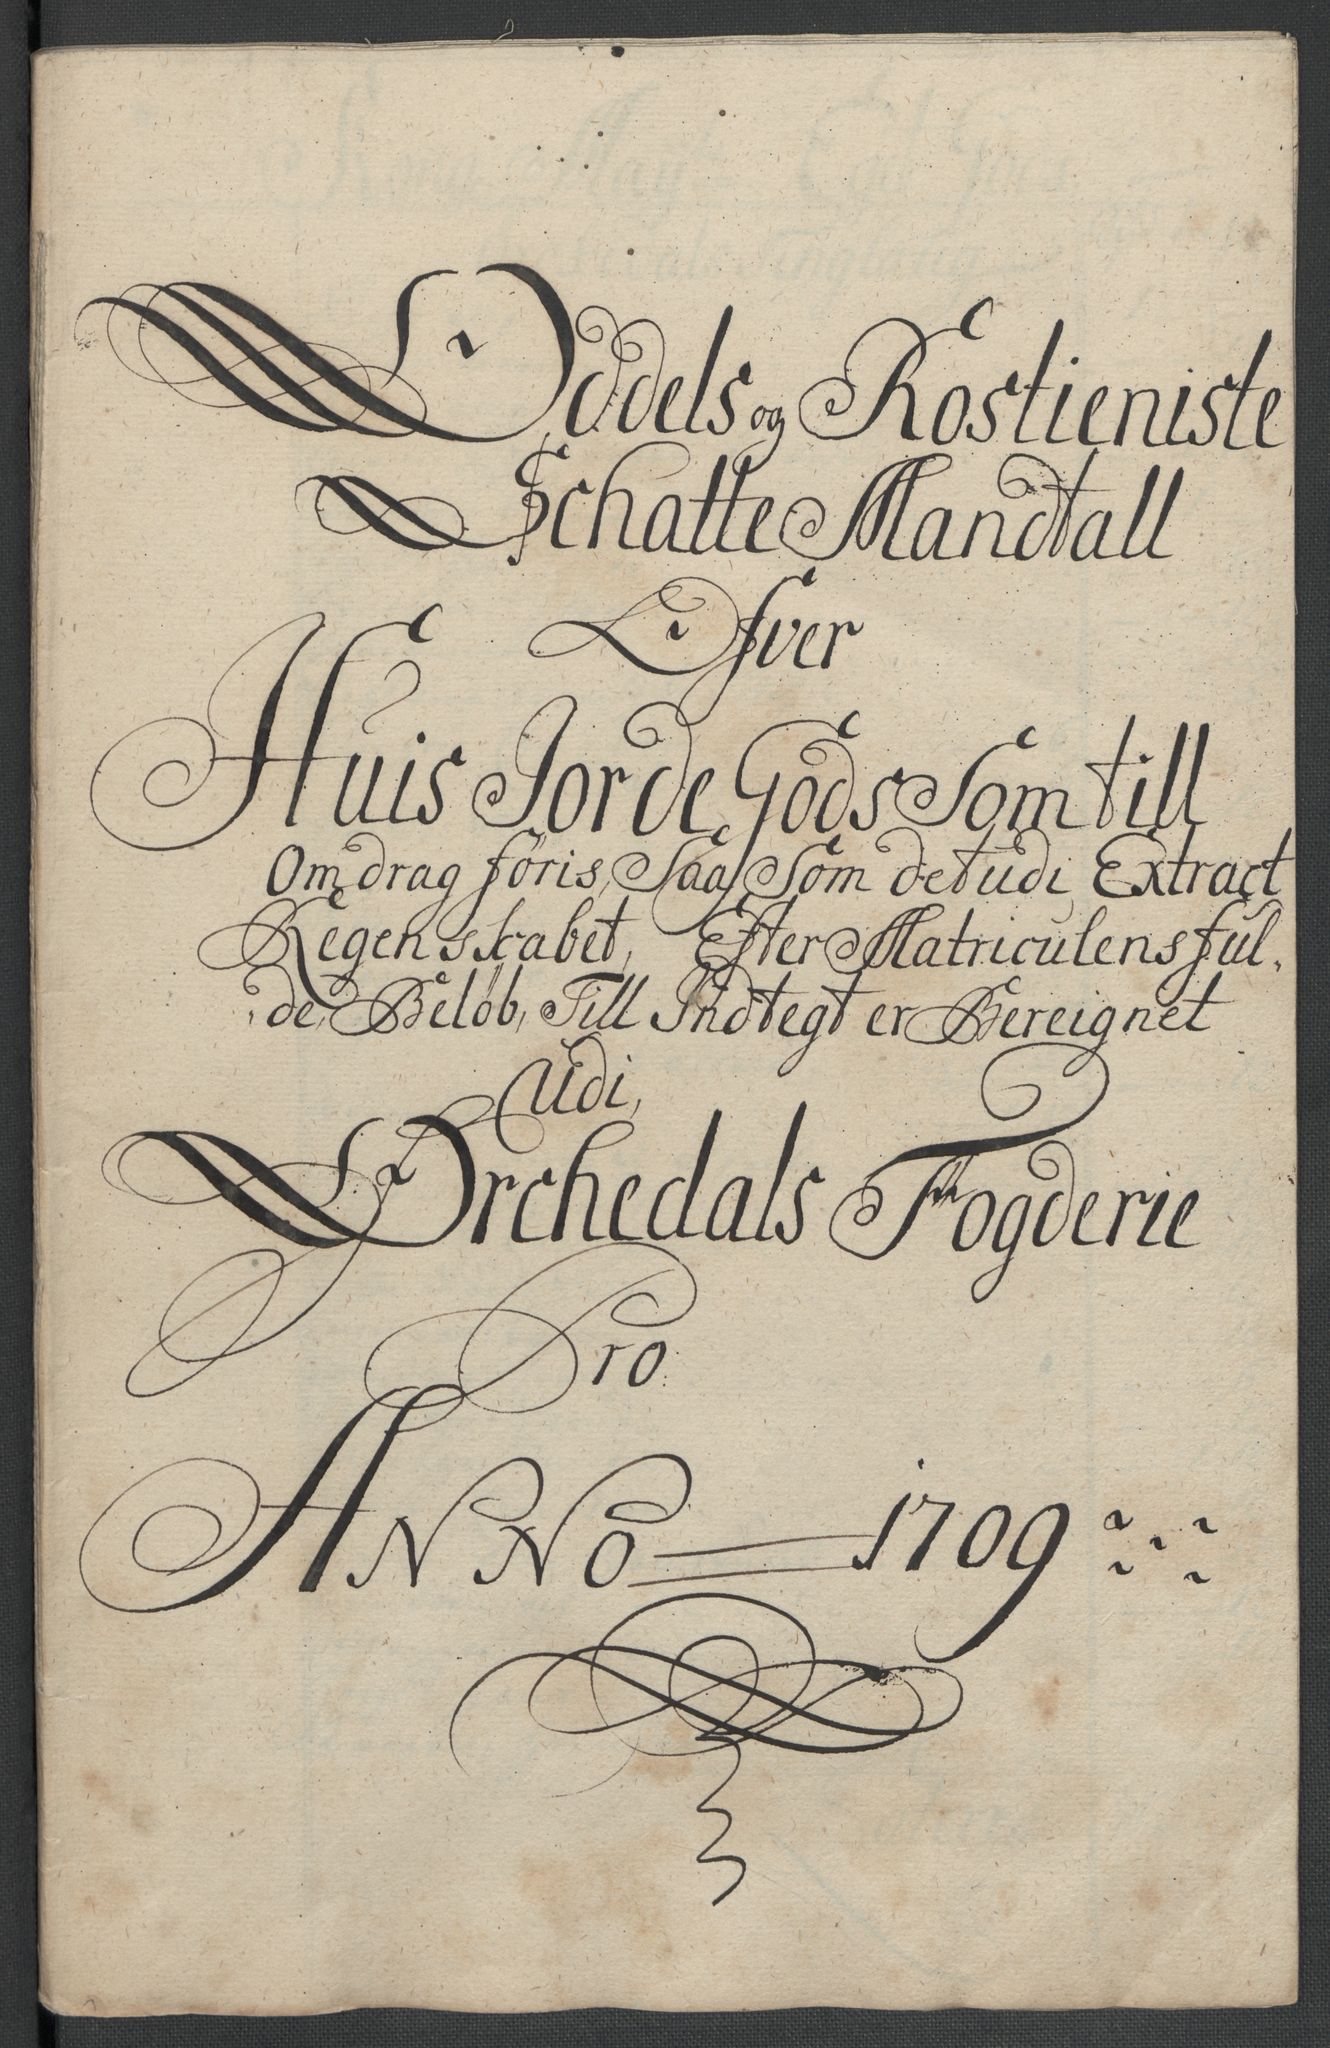 Oddels og Rostieniste
Schatte Mandtall
Ofver
Huis Jorde Gods Som till
Omdrag føris, Saa Som det udi Extract
Regensskabet, Efter Matriculens ful-
de Beløb, Till Indtegt er Bereignet
Udi,
Orchedals Fogderie
Pro
ANNO 1709